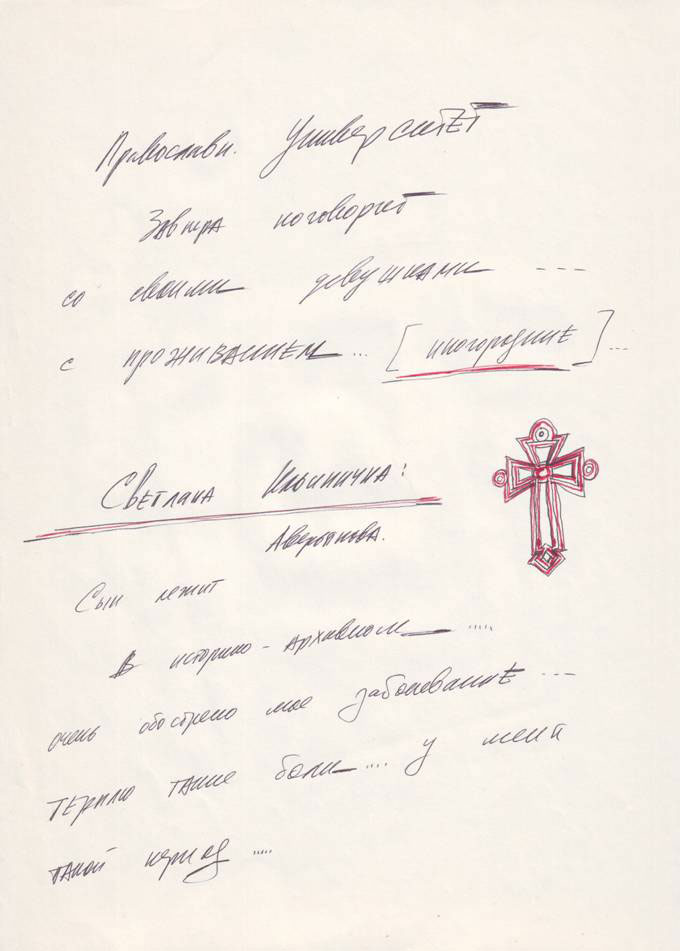 Православн. Университет
Завтра поговорит
со своими девушками ---
с проживанием... [иногородние]...
Светлана Ильинична:
Аверьянова.
Сын лежит
в историко-архивном .....
очень обострено мое заболевание ...
терплю такие боли.... у меня
такой период .....